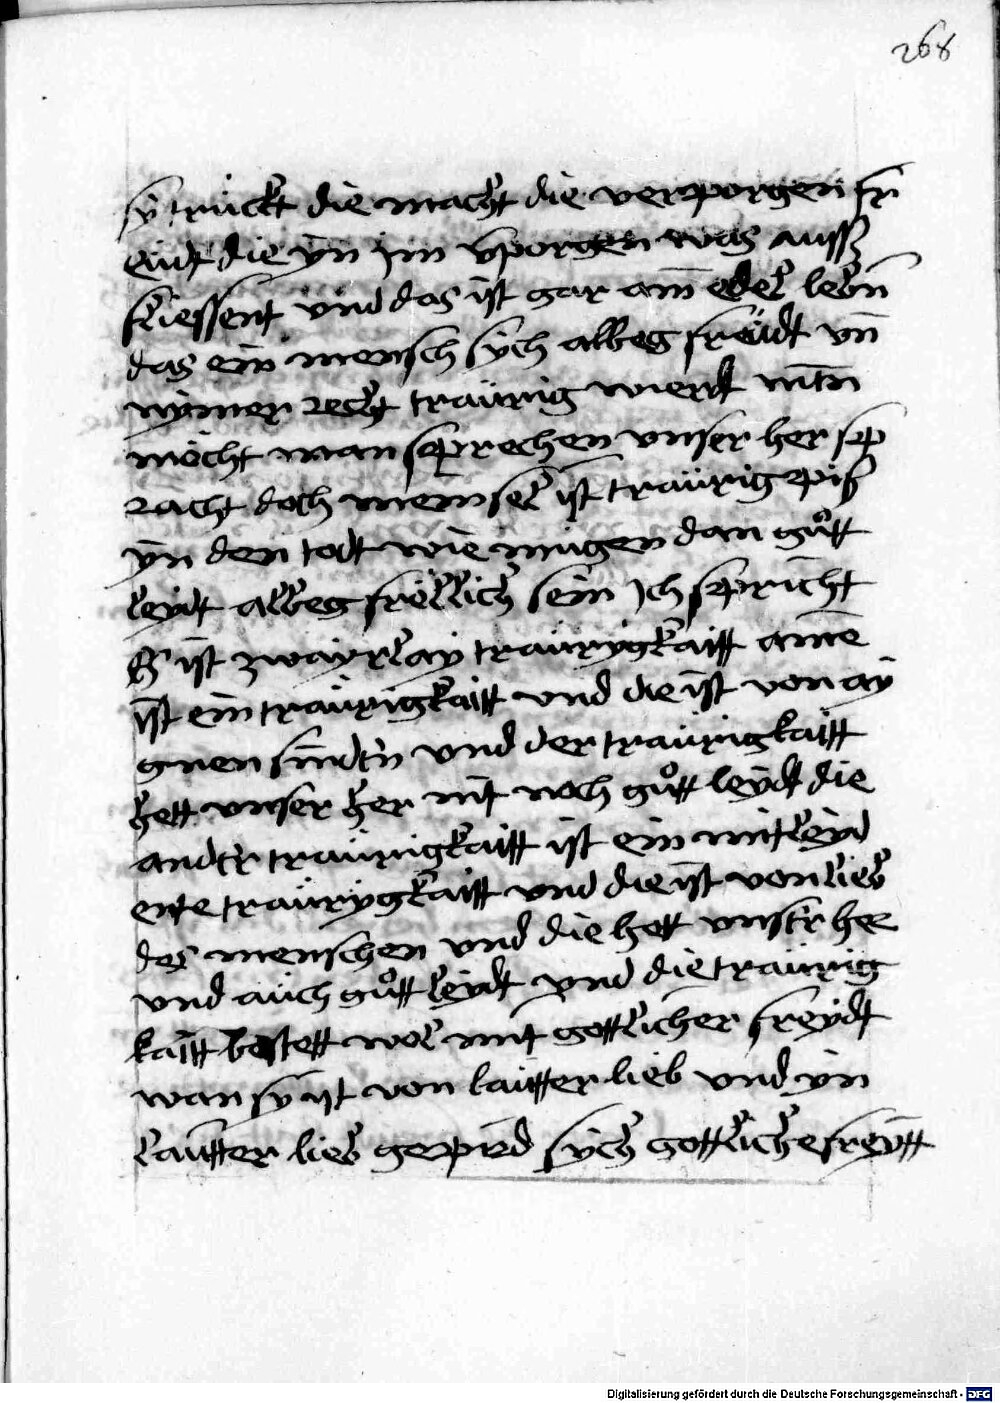 268
sÿ trückt die macht die verporgen fr
eüdt die ÿn jm vporgen was ausß
fliessent vnd das ist gar ain̄ edel lebn̄
das ein mensch sÿch albeg freüdt vn̄
nÿmer recht traürig wierdt
möcht man sprechen vnser her sp
racht doch mein sel ist traürig piß
ÿn den todt wie mügen dan gůtt
leÿdt albeg fröllich sein Jch spricht
Eß ist zwaÿrlaÿ traürÿgkaitt aine
ist ein traürigkaitt vnd die ist von aÿ
gnen sündn̄ vnd der traürigkaitt
hett vnser her nit noch gůtt leÿdt die
ander traürigkaitt ist ein mitleÿd
ente traürÿgkaitt vnd die ist von lieb
des menschen vnd die hett vnser her
vnd aüch gůtt leÿdt vnd die traürig
kaitt bestett wol mit gottlicher freÿdt
wan sÿ ist von laütter lieb vnd ÿn
laütter lieb gepird sÿch gottliche freÿtt
Digitalisierung gefördert durch die Deutsche Forschungsgemeinschaft - DFG